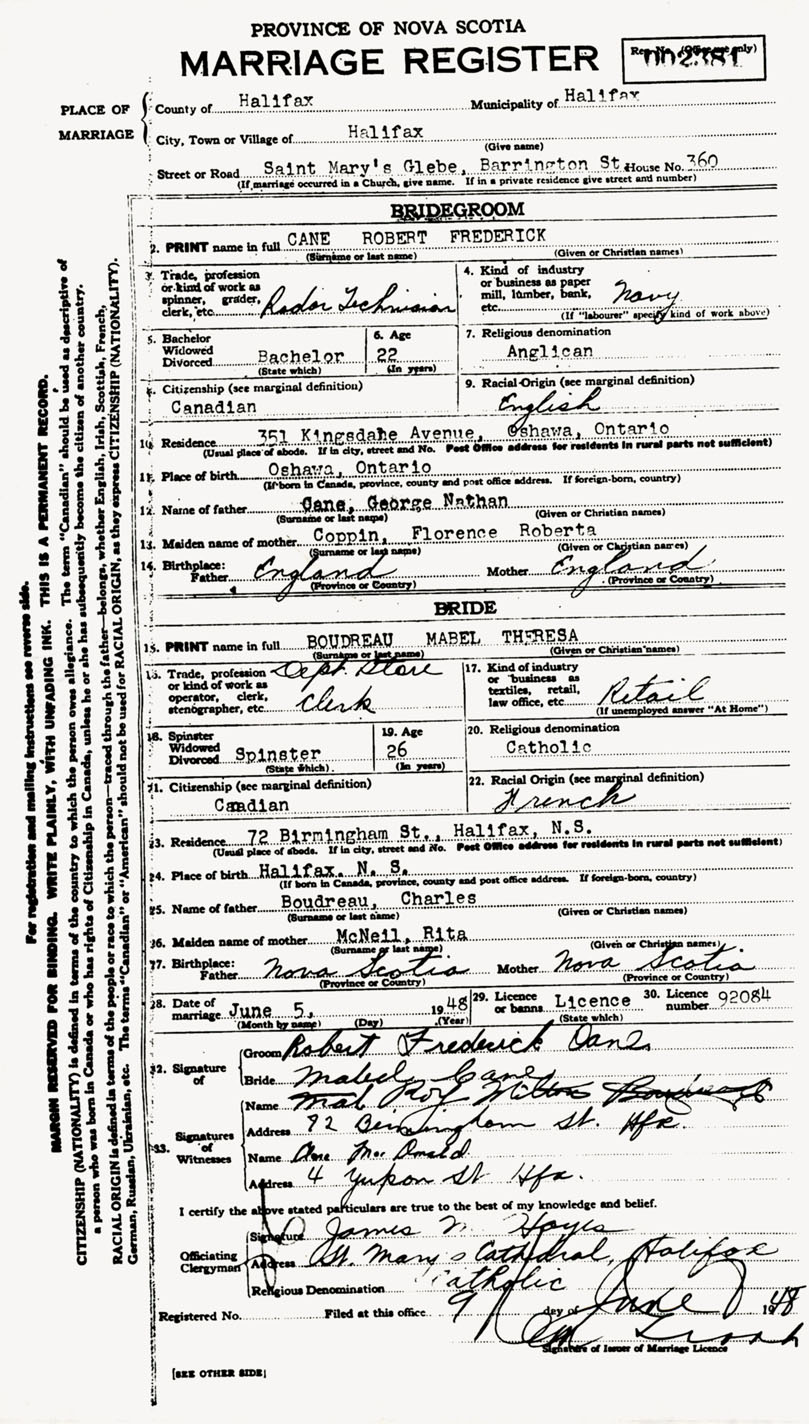 PROVINCE OF NOVA SCOTIA
MARRIAGE REGISTER
Reg. No. (Office use only)
002381
PLACE OF MARRIAGE
County of Halifax Municipality of Halifax
City, Town or Village of Halifax
(Give name)
Street or Road Saint Mary's Glebe, Barrington St. House No. 360
(If marriage occurred in a Church, give name. If in a private residence give street and number)
BRIDEGROOM
2. PRINT name in full CANE ROBERT FREDERICK
(Surname or last name) (Given or Christian names)
3. Trade, profession
or kind of work as
spinner, grader,
clerk, etc. Radar Technician
4. Kind of industry
or business as paper
mill, lumber, bank,
etc. Navy
(If "labourer" specify kind of work above)
5. Bachelor
Widowed
Divorced Bachelor
(State which)
6. Age
22
(In years)
7. Religious denomination
Anglican
8. Citizenship (see marginal definition)
Canadian
9. Racial Origin (see marginal definition)
English
10. Residence 351 Kingsdahe Avenue, Oshawa, Ontario
(Usual place of abode. If in city, street and No. Post Office address for residents in rural parts not sufficient)
11. Place of birth Oshawa, Ontario
(If born in Canada, province, county and post office address. If foreign-born, country)
12. Name of father Cane, George Nathan
(Surname or last name) (Given or Christian names)
13. Maiden name of mother Coppin, Florence Roberta
(Surname or last name) (Given or Christian names)
14. Birthplace:
Father England Mother England
(Province or Country) (Province or Country)
BRIDE
15. PRINT name in full BOUDREAU MABEL THERESA
(Surname or last name) (Given or Christian names)
16. Trade, profession
or kind of work as
operator, clerk,
stenographer, etc. Dept. Store
Clerk
17. Kind of industry
or business as
textiles, retail,
law office, etc. Retail
(If unemployed answer "At Home")
18. Spinster
Widowed
Divorced Spinster
(State which)
19. Age
26
(In years)
20. Religious denomination
Catholic
21. Citizenship (see marginal definition)
Canadian
22. Racial Origin (see marginal definition)
French
23. Residence 72 Birmingham St., Halifax, N.S.
(Usual place of abode. If in city, street and No. Post Office address for residents in rural parts not sufficient)
24. Place of birth Halifax, N. S.
(If born in Canada, province, county and post office address. If foreign-born, country)
25. Name of father Boudreau, Charles
(Surname or last name) (Given or Christian names)
26. Maiden name of mother McNeil, Rita
(Surname or last name) (Given or Christian names)
27. Birthplace:
Father Nova Scotia Mother Nova Scotia
(Province or Country) (Province or Country)
28. Date of
marriage June 5, 1948
(Month by name) (Day) (Year)
29. Licence
or banns Licence
(State which)
30. Licence
number 92084
32. Signature
of
Groom Robert Frederick Cane
Bride Mabel Cane
33. Signatures
of
Witnesses
Name Roy
Address 72 Birmingham St. Hfx.
Name
Address 4 Yukon St Hfx.
I certify the above stated particulars are true to the best of my knowledge and belief.
Officiating
Clergyman
Signature James M. Hayes
Address St. Mary's Cathedral, Halifax
Religious Denomination Catholic
Registered No. Filed at this office 9 day of June 1948
Signature of Issuer of Marriage Licence
[SEE OTHER SIDE]
For registration and mailing instructions see reverse side.
MARGIN RESERVED FOR BINDING. WRITE PLAINLY, WITH UNFADING INK. THIS IS A PERMANENT RECORD.
CITIZENSHIP (NATIONALITY) is defined in terms of the country to which the person owes allegiance. The term "Canadian" should be used as descriptive of
a person who was born in Canada or who has rights of Citizenship in Canada, unless he or she has subsequently become the citizen of another country.
RACIAL ORIGIN is defined in terms of the people or race to which the person—traced through the father—belongs, whether English, Irish, Scottish, French,
German, Russian, Ukrainian, etc. The terms "Canadian" or "American" should not be used for RACIAL ORIGIN, as they express CITIZENSHIP (NATIONALITY).